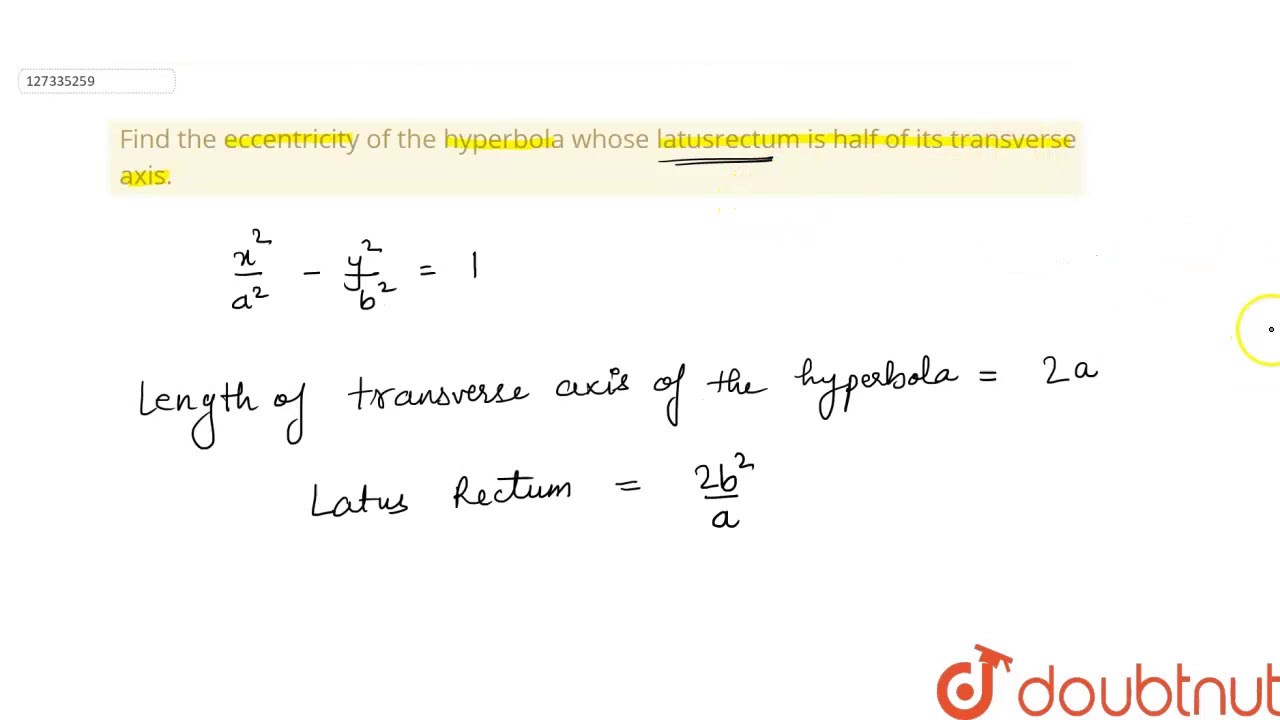 127335259
Find the eccentricity of the hyperbola whose latusrectum is half of its transverse
axis.
x²/a² - y²/b² = 1
Length of transverse axis of the hyperbola = 2a
Latus Rectum = 2b²/a
doubtnut